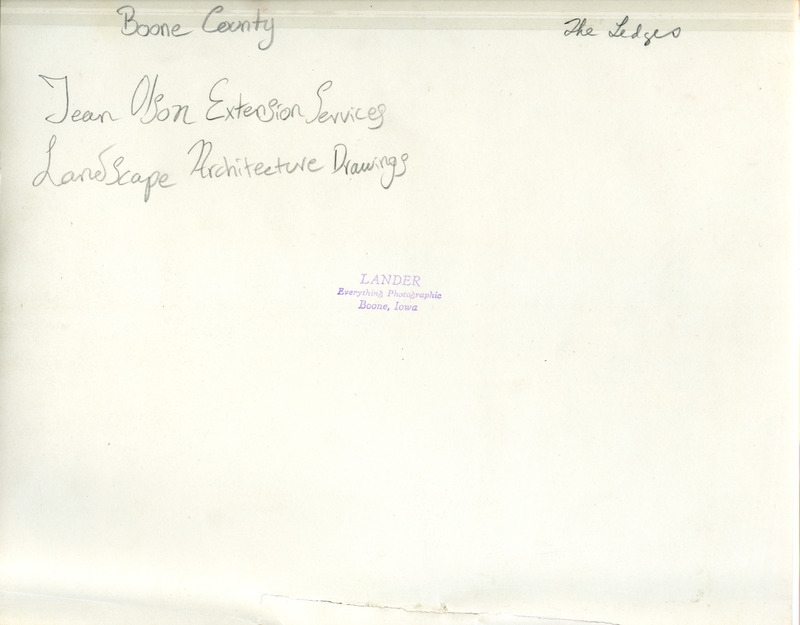 Boone County
The Ledges
Jean Olson Extension Services
Landscape Architecture Drawings
LANDER
Everything Photographic
Boone, Iowa